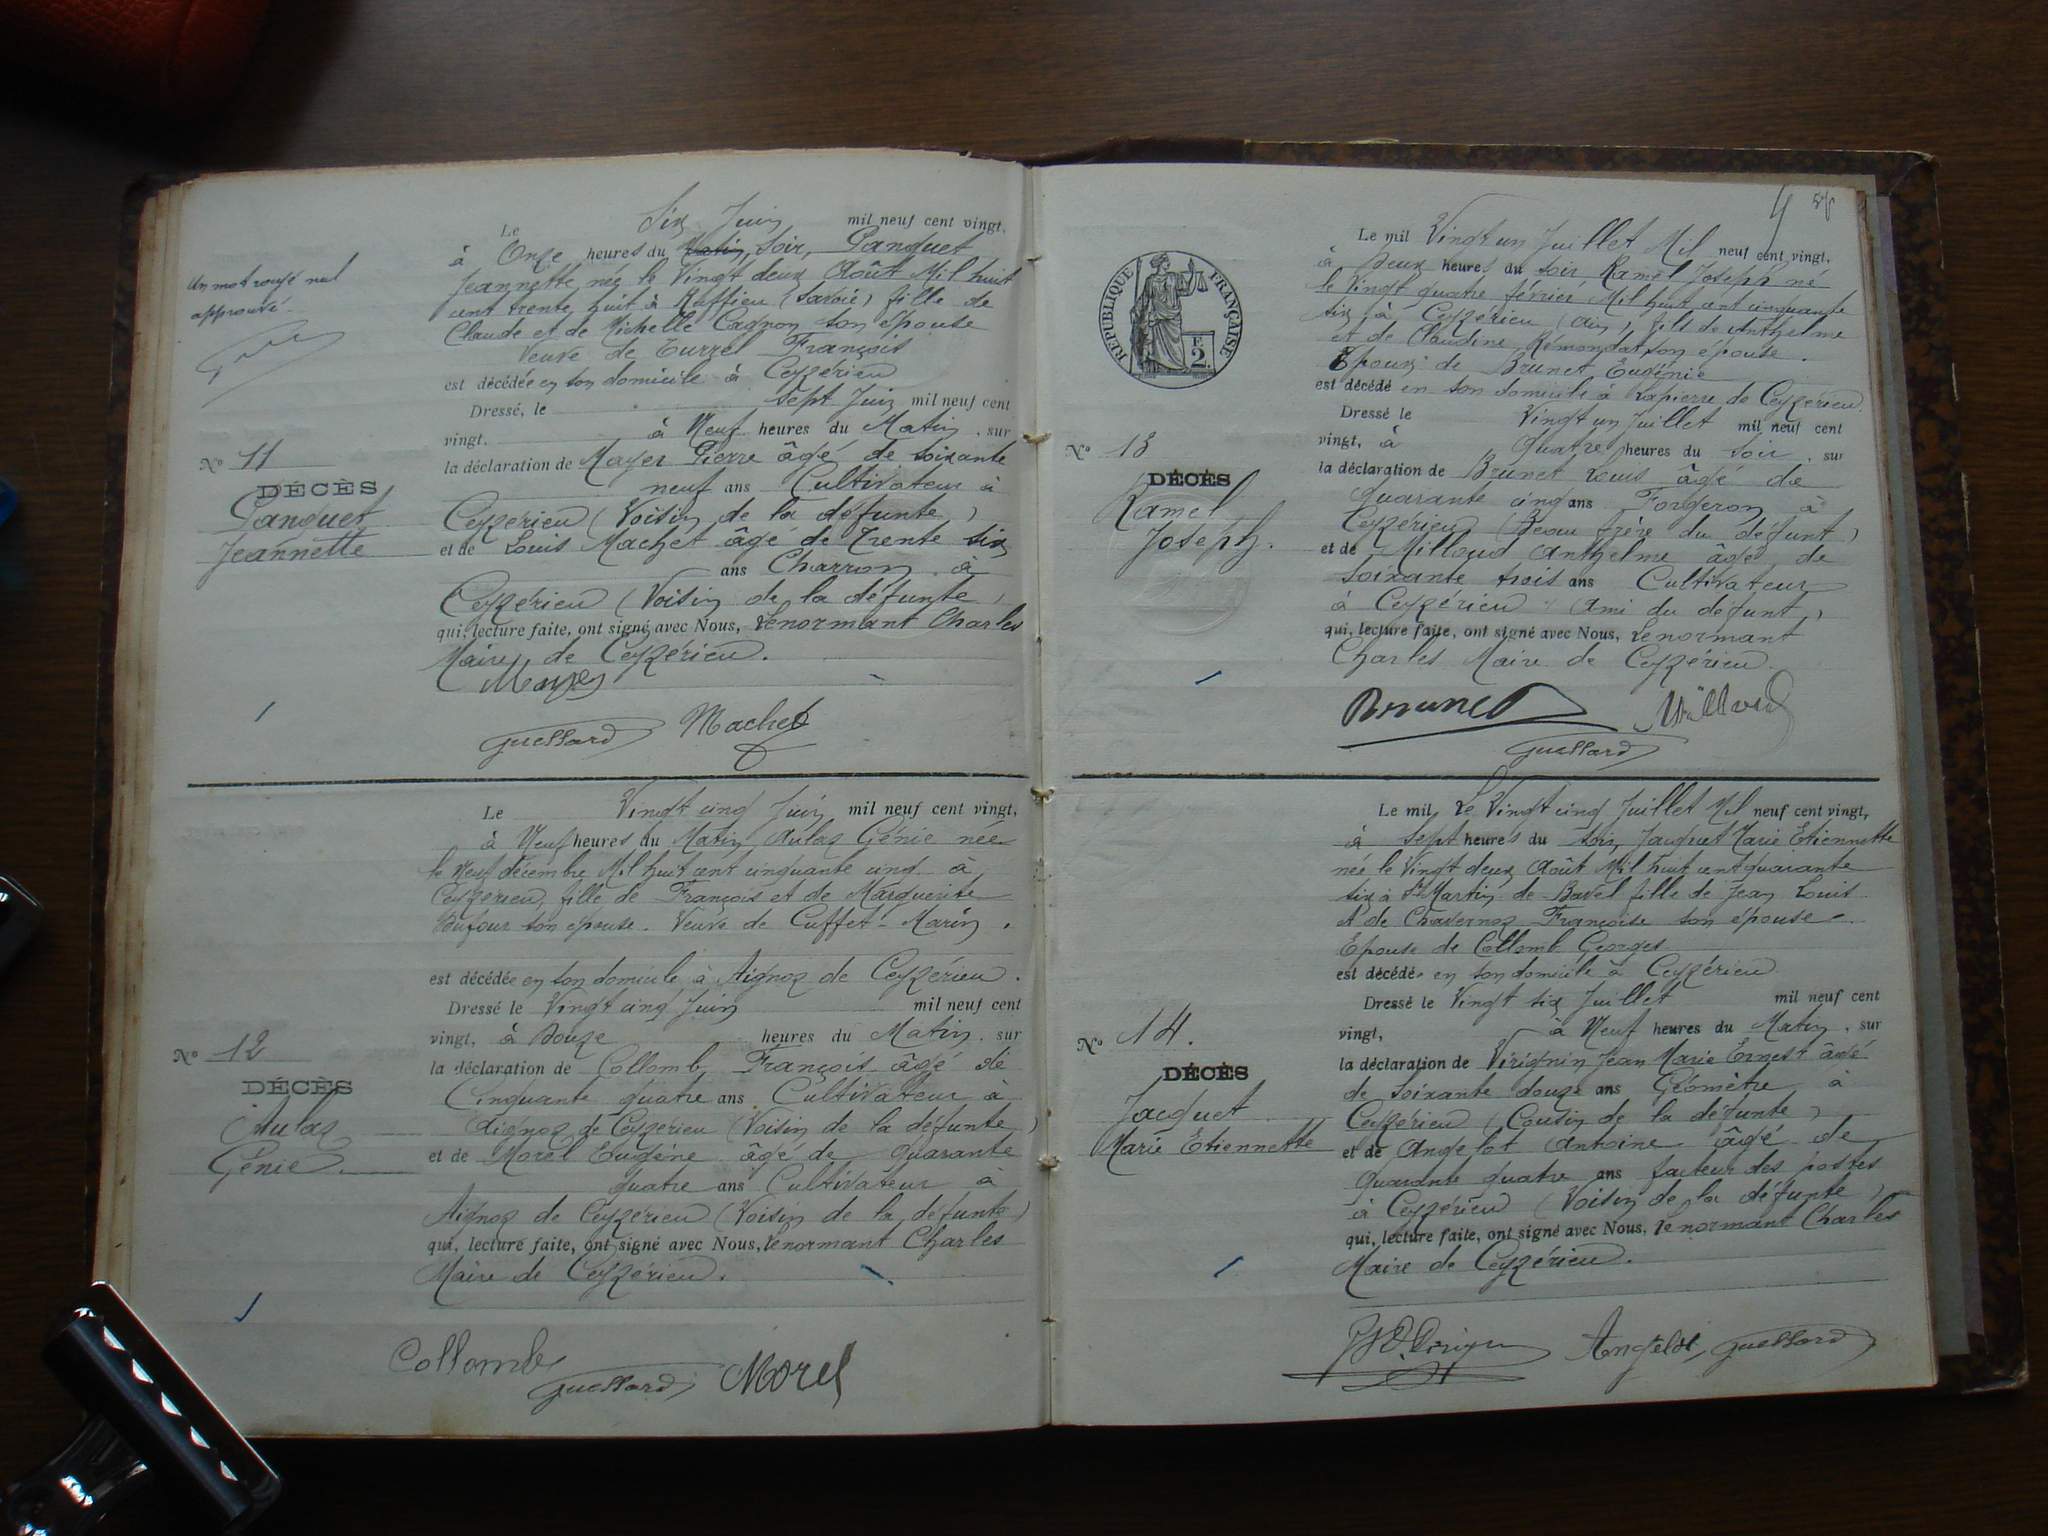 Un mot rayé nul
approuvé.
Nº 11
DÉCÈS
Panquet
Jeannette
Le Six Juin mil neuf cent vingt,
à Onze heures du Matin, Soir, Panquet
Jeannette, née le Vingt deux Août Mil huit
cent trente huit à Ruffieu (Savoie) fille de
Claude et de Michelle Cagnon son épouse
Veuve de Turrel François
est décédée en son domicile à Ceyzérieu
Dressé, le Sept Juin mil neuf cent
vingt, à Neuf heures du Matin, sur
la déclaration de Mayer Pierre âgé de soixante
neuf ans Cultivateur à
Ceyzérieu (Voisin de la défunte)
et de Louis Machet âgé de Trente six
ans Charron à
Ceyzérieu (Voisin de la défunte)
qui, lecture faite, ont signé avec Nous, Lenormant Charles
Maire de Ceyzérieu.
Mayer
Guessard Machet
Nº 12
DÉCÈS
Aulaz
Génie
Le Vingt cinq Juin mil neuf cent vingt,
à Neuf heures du Matin Aulaz Génie née
le Neuf décembre Mil huit cent cinquante cinq à
Ceyzérieu, fille de François et de Marguerite
Dufour son épouse. Veuve de Cuffet Marin.
est décédée en son domicile à Aignoz de Ceyzérieu.
Dressé le Vingt cinq Juin mil neuf cent
vingt, à Douze heures du Matin, sur
la déclaration de Collomb François âgé de
Cinquante quatre ans Cultivateur à
Aignoz de Ceyzérieu (Voisin de la défunte)
et de Morel Eugène âgé de quarante
quatre ans Cultivateur à
Aignoz de Ceyzérieu (Voisin de la défunte)
qui, lecture faite, ont signé avec Nous, Lenormant Charles
Maire de Ceyzérieu.
Collomb Guessard Morel
RÉPUBLIQUE FRANÇAISE
2
Nº 13
DÉCÈS
Ramel
Joseph.
Le mil Vingt un Juillet Mil neuf cent vingt,
à Deux heures du soir Ramel Joseph né
le Vingt quatre février Mil huit cent cinquante
six à Ceyzérieu (Ain), fils de Anthelme
et de Claudine Rémondat son épouse.
Epoux de Brunet Eugénie
est décédé en son domicile à Lapierre de Ceyzérieu.
Dressé le Vingt un Juillet mil neuf cent
vingt, à Quatre heures du Soir, sur
la déclaration de Brunet Louis âgé de
quarante cinq ans Forgeron à
Ceyzérieu (Beau frère du défunt)
et de Milloud Anthelme âgé de
Soixante trois ans Cultivateur
à Ceyzérieu (Ami du défunt)
qui, lecture faite, ont signé avec Nous, Lenormant
Charles Maire de Ceyzérieu.
Brunet Milloud
Guessard
Nº 14.
DÉCÈS
Jacquet
Marie Etiennette
Le mil Le Vingt cinq Juillet Mil neuf cent vingt,
à Sept heures du Soir, Jacquet Marie Etiennette
née le Vingt deux Août Mil huit cent quarante
six à St Martin de Bavel fille de Jean Louis
et de Chavernoz Françoise son épouse
Epouse de Collomb Georges
est décédée en son domicile à Ceyzérieu
Dressé le Vingt six Juillet mil neuf cent
vingt, à Neuf heures du Matin, sur
la déclaration de Virignin Jean Marie Ernest âgé
de Soixante douze ans Géomètre à
Ceyzérieu (Cousin de la défunte)
et de Angelot Antoine âgé de
Quarante quatre ans facteur des postes
à Ceyzérieu (Voisin de la défunte)
qui, lecture faite, ont signé avec Nous, Lenormant Charles
Maire de Ceyzérieu.
Angelot Guessard